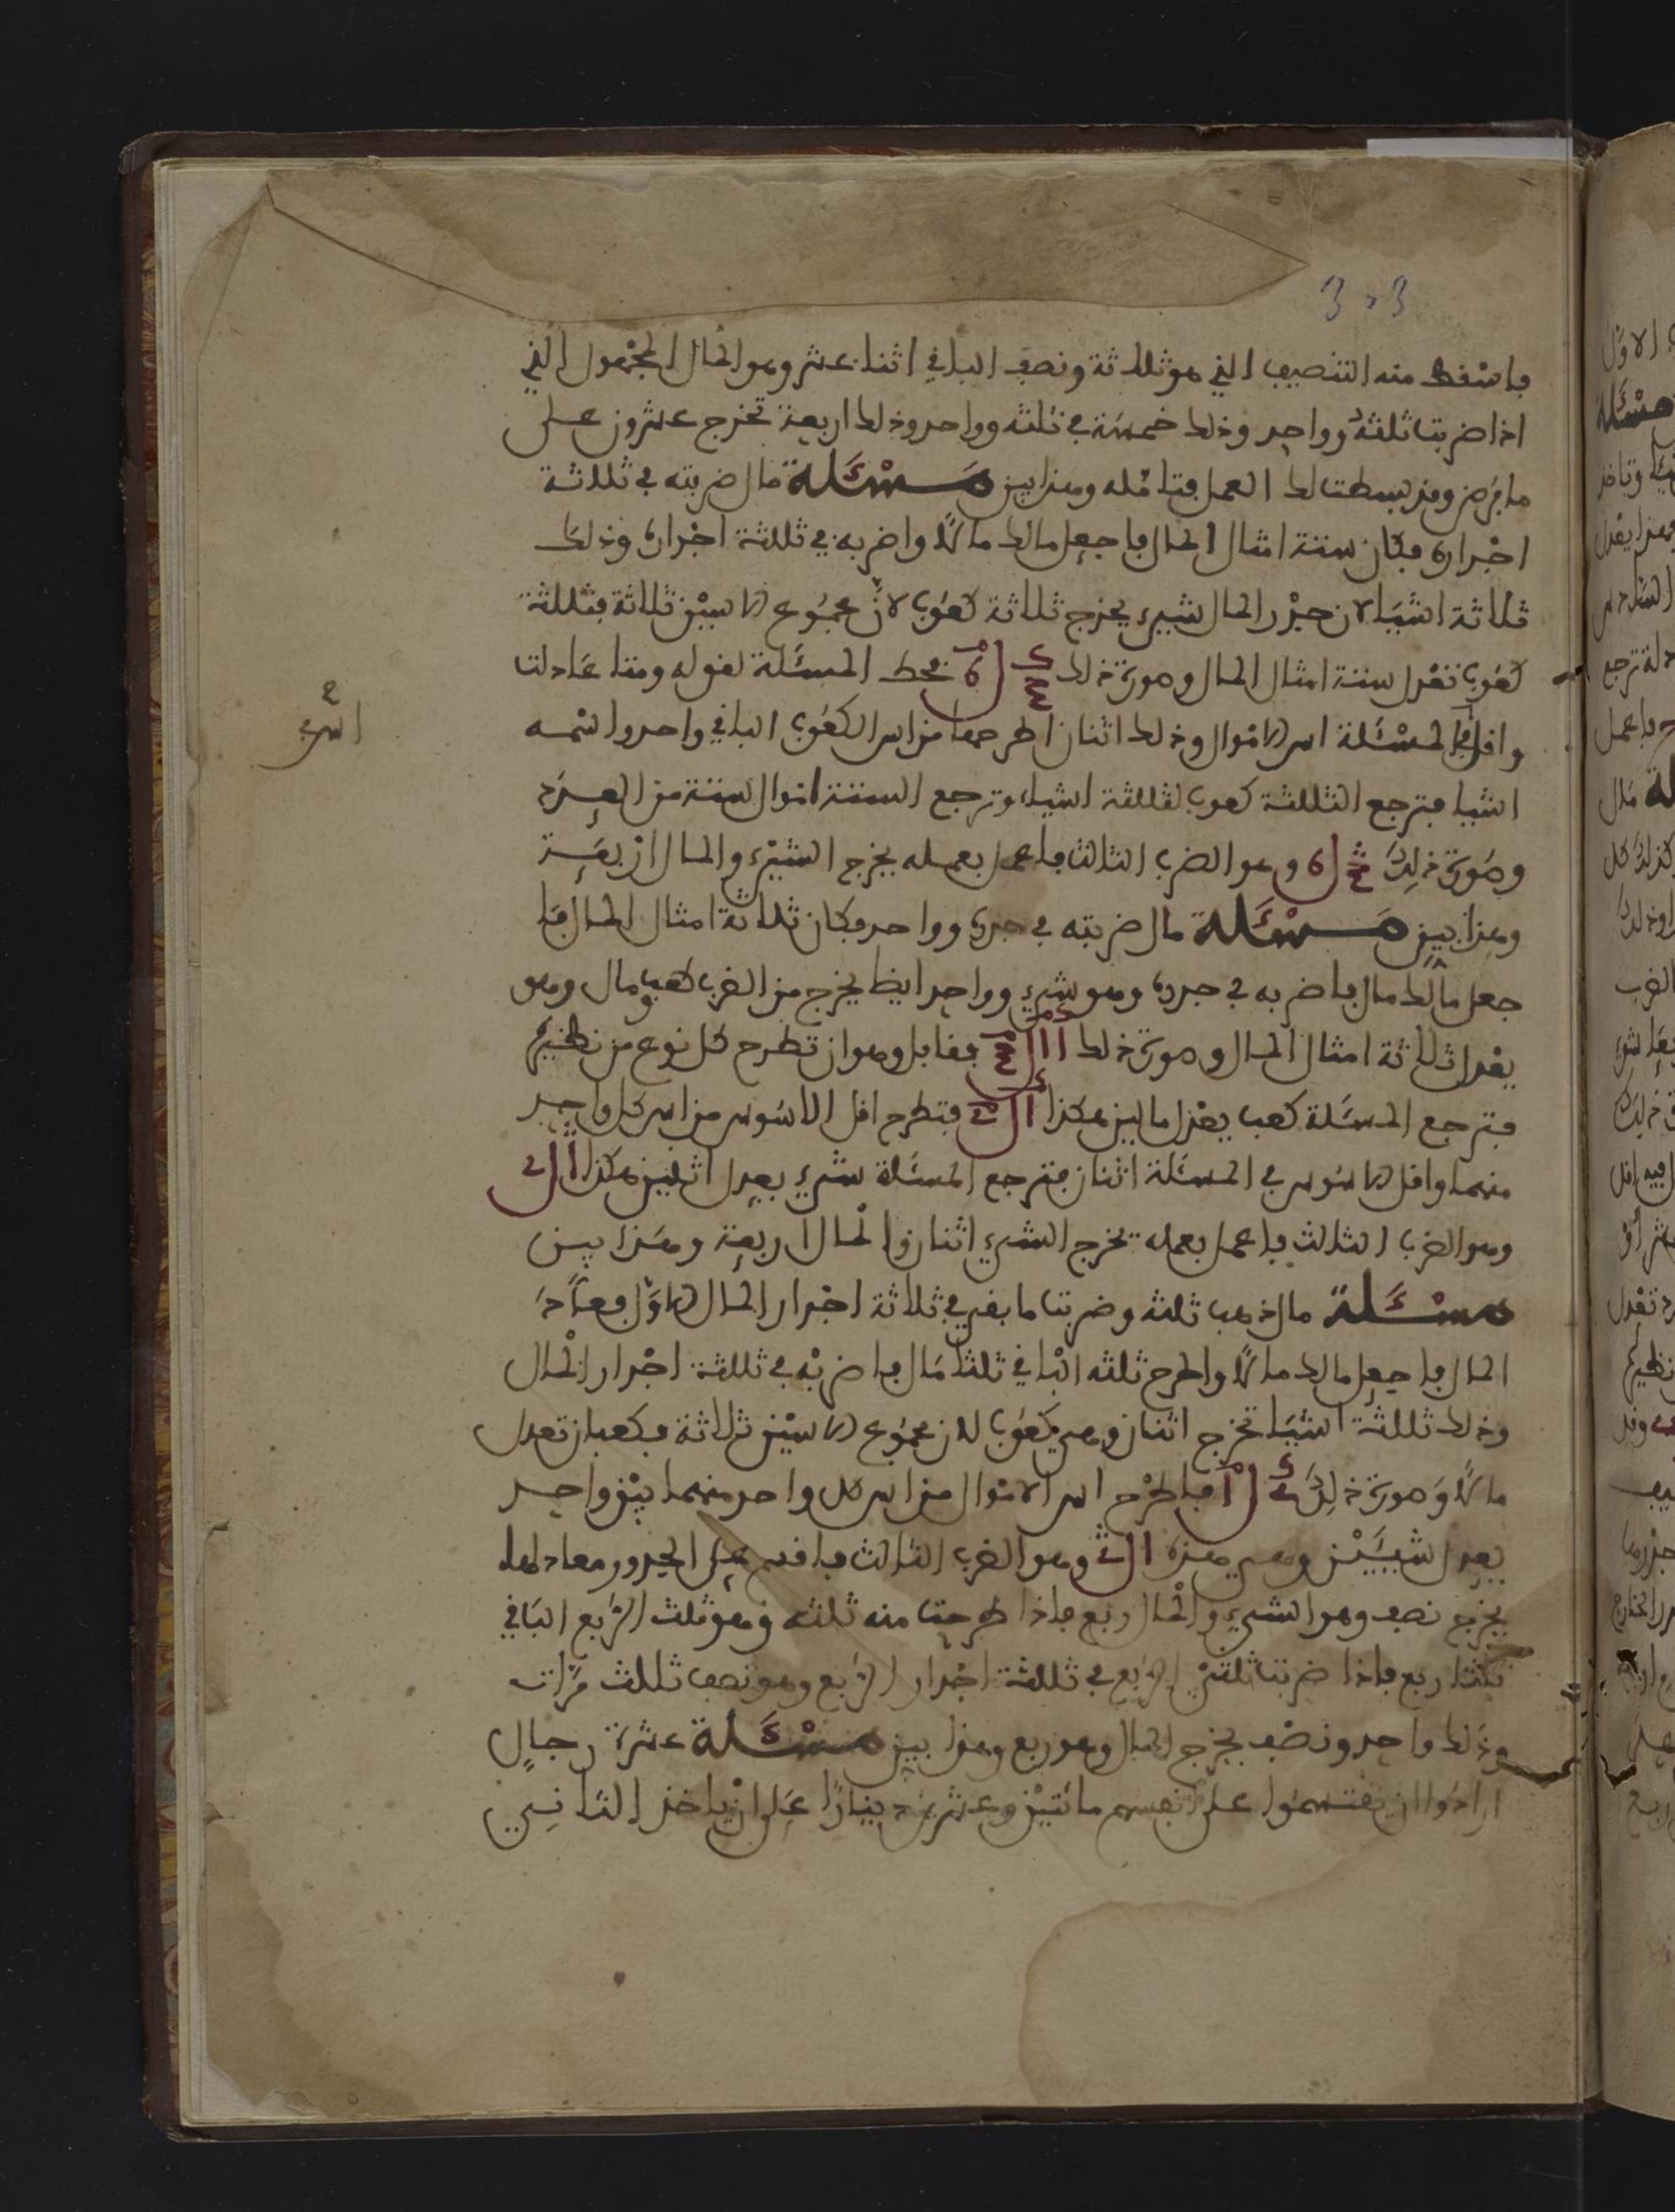 فاسقط منه التنصيف الذي هو ثلاثة ونصف الباقي اثنا عشر وهو المال المجهول الذي
اذا ضربت ثلثه وواحد وذلك خمسة في ثلثه وواحد وذلك اربعة تخرج عشرون على
ما فرض وقد بسطت لك العمل فتامله وهذا بين مسئلة مال ضربته في ثلاثة
اجذاره فكان ستة امثال المال فاجعل مالك مالا واضربه في ثلثة اجذاره وذلك
ثلاثة اشيا لان جذر المال شيىء يخرج ثلاثة كعوب لان مجموع الاسين ثلاثة فثلثة
كعوب تعدل ستة امثال المال وصورة ذلك فحط المسئلة لقوله ومتا عادلت
واقل في المسئلة اس الاموال وذلك اثنان اطرحها من اس الكعوب الباقي واحد واسمه
اشيا فترجع الثلثة كعوب لثلثة اشياء وترجع الستة اموال لستة من العدد
وصورة ذلك وهو الضرب الثالث فاعمل بعمله يخرج الشيىء والمال اربعة
وهذا بين مسئلة مال ضربته في جذره وواحد فكان ثلاثة امثال المال فا
جعل مالك مال فاضربه في جذره وهو شيىء وواحد ايضا يخرج من الضرب كعب ومال وهو
يعدل ثلاثة امثال المال وصورة ذلك فقابل وهو ان تطرح كل نوع من نظيره
فترجع المسئلة كعب يعدل مالين هكذا فتطرح اقل الاسوس من اس كل واحد
منهما واقل الاسوس في المسئلة اثنان فترجع المسئلة شيء يعدل اثنين هكذا
وهو الضرب الثالث فاعمل بعمله يخرج الشيء اثنان والمال اربعة وهذا بين
مسئلة مال ذهب ثلثه وضربت ما بقي في ثلاثة اجذار المال الاول فعاد
المال فاجعل مالك مالا واطرح ثلثه الباقي ثلثا مال فاضربه في ثلثة اجذار المال
وذلك ثلثة اشيا تخرج اثنان وهي كعوب لان مجموع الاسين ثلاثة فكعبان تعدل
مالا وصورة ذلك فاطرح اس الاموال من اس كل واحد منهما يبن واحد
يعدل شيئين وهي هذه وهو الضرب الثالث فاقسم على الجذور معادلها
يخرج نصف وهو الشيء والمال ربع فاذا طرحت منه ثلثه وهو ثلث الربع الباقي
ثلثا ربع فاذا ضربت ثلثي الربع في ثلثة اجذار الربع وهو نصف ثلاث مرات
وذلك واحد ونصف يخرج المال وهو ربع وهذا بين مسئلة عشرة رجال
ارادوا ان يقتسموا على انفسهم مائتين وعشرين دينارا على ان ياخذ الثاني